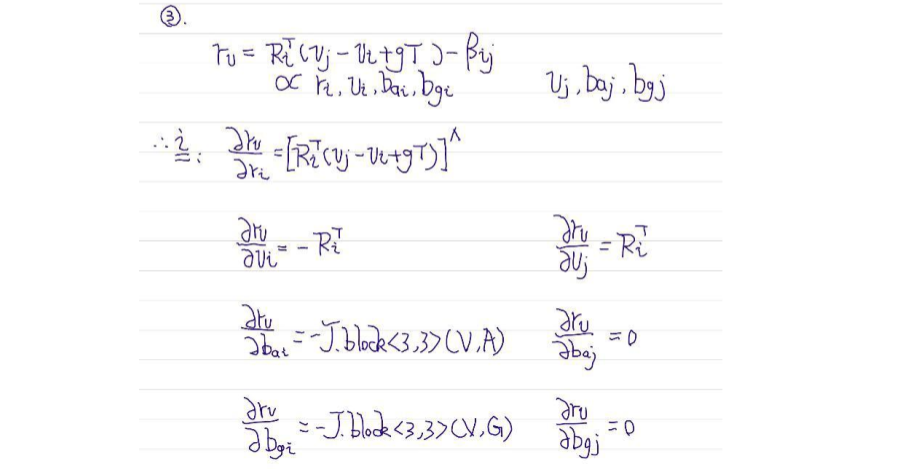 ③.
r_v = R_i^T (v_j - v_i + gT) - β_ij
∝ r_i, v_i, b_ai, b_gi v_j, b_aj, b_gj
∴ i: ∂r_v/∂r_i = [R_i^T (v_j - v_i + gT)]^∧
∂r_v/∂v_i = - R_i^T ∂r_v/∂v_j = R_i^T
∂r_v/∂b_ai = -J.block<3,3>(V,A) ∂r_v/∂b_aj = 0
∂r_v/∂b_gi = -J.block<3,3>(V,G) ∂r_v/∂b_gj = 0